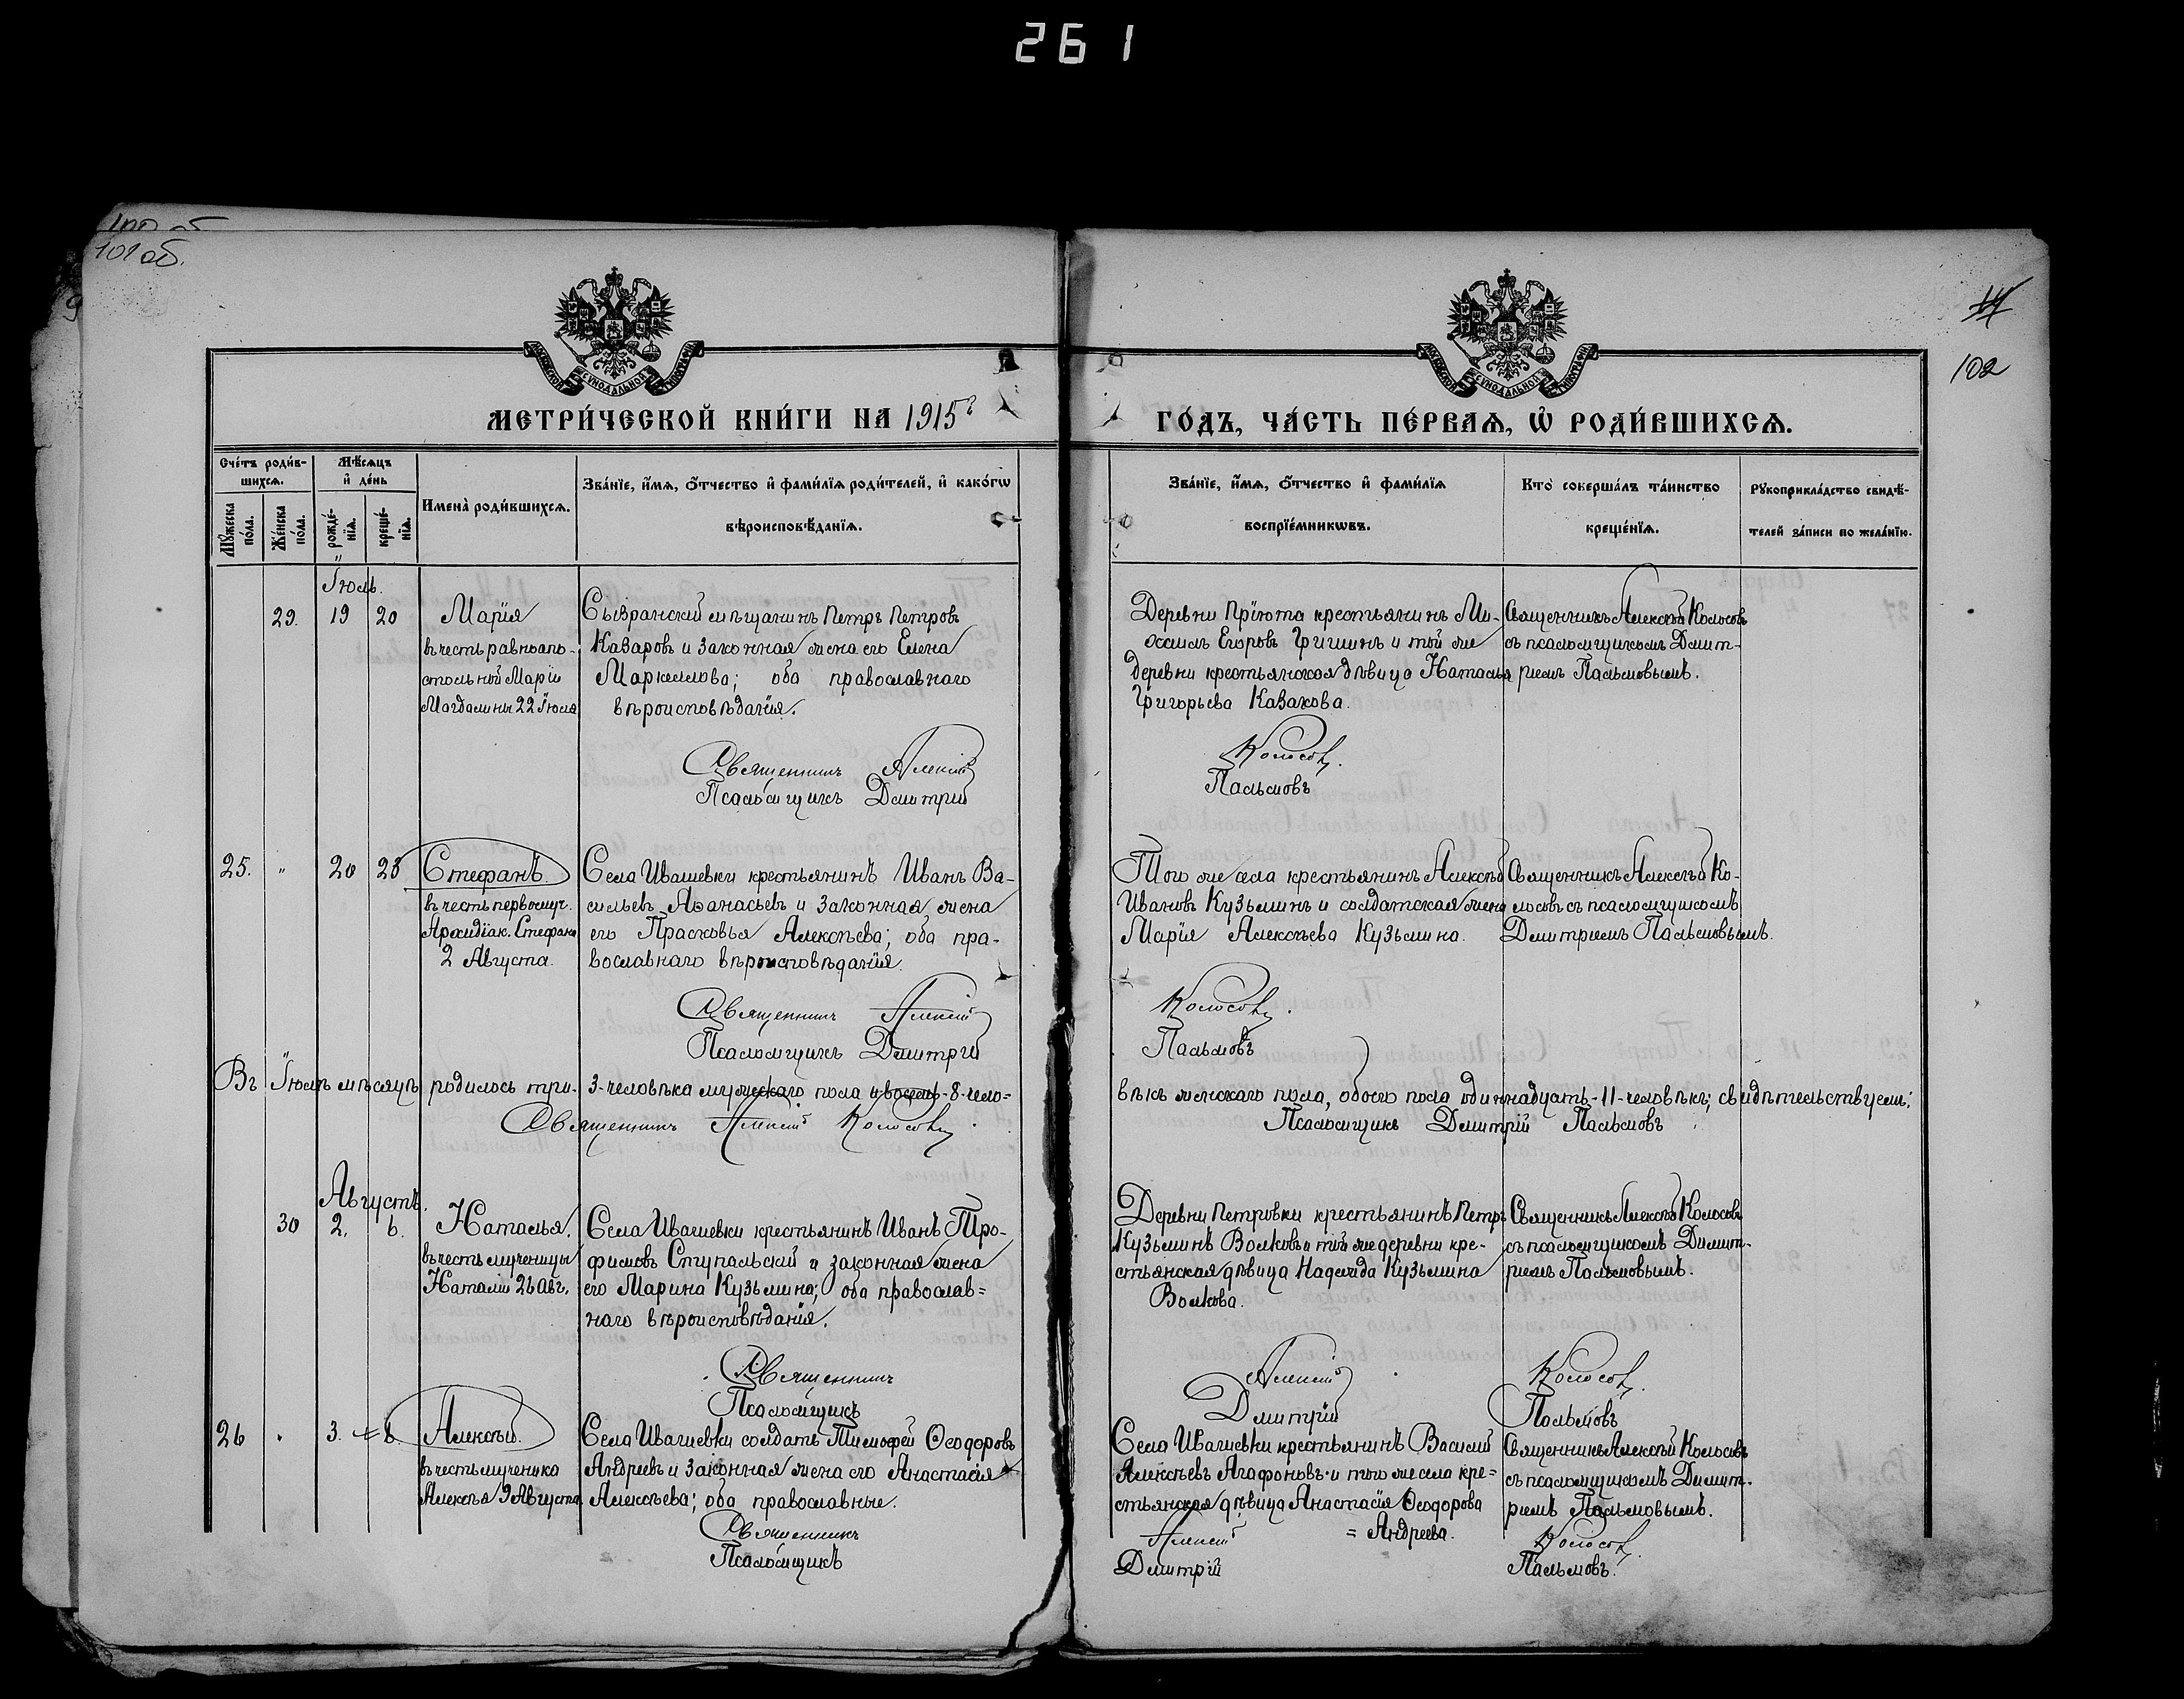 261
101 об.
102
МЕТРИ́ЧЕСКОЙ КНИ́ГИ НА 1915 г
ГО́ДЪ, ЧА́СТЬ ПЕ́РВАѦ, Ѡ҆ РОДИ́ВШИХСѦ.
Сче́тъ роди́в-
шихсѧ.
Мꙋ́жеска по́ла.
Же́нска по́ла.
Мѣ́сѧцъ
и҆ де́нь
рожде́-
нїѧ.
креще́-
нїѧ.
Имена̀ роди́вшихсѧ.
Зва́нїе, и҆́мѧ, ѻ҆́тчество и҆ фами́лїѧ роди́телей, и҆ како́гѡ
вѣроисповѣ́данїѧ.
Зва́нїе, и҆́мѧ, ѻ҆́тчество и҆ фами́лїѧ
воспрїе́мникѡвъ.
Кто̀ соверша́лъ та́инство
креще́нїѧ.
Рꙋкоприкла́дство свидѣ́-
телей за́писи по жела́нїю.
Іюль.
29. 19 20
Марія
въ честь равноапо-
стольной Маріи
Магдалины 22 Іюля
Сызранскій мѣщанинъ Петръ Петровъ
Казаровъ и законная жена его Елена
Маркелова; оба православнаго
вѣроисповѣданія.
Деревни Пріюта крестьянинъ Ми-
хаилъ Егоровъ Гришинъ и той же
деревни крестьянская дѣвица Наталья
Григорьева Казакова.
Священникъ Алексѣй Колосовъ
съ псаломщикомъ Димит-
ріемъ Пальмовымъ.
Священникъ Алексій Колосовъ.
Псаломщикъ Дмитрій Пальмовъ
25. " 20 23
Стефанъ.
въ честь первомуч.
Архидіак. Стефана
2 Августа.
Села Ивашевки крестьянинъ Иванъ Ва-
сильевъ Аѳанасьевъ и законная жена
его Прасковья Алексѣева; оба пра-
вославнаго вѣроисповѣданія.
Того же села крестьянинъ Алексѣй
Ивановъ Кузьминъ и солдатская жена
Марія Алексѣева Кузьмина.
Священникъ Алексѣй Ко-
лосовъ съ псаломщикомъ
Дмитріемъ Пальмовымъ.
Священникъ Алексій Колосовъ.
Псаломщикъ Дмитрій Пальмовъ
Въ Іюлѣ мѣсяцѣ родилось три - 3 - человѣка мужскаго пола и восемь - 8 - чело=
вѣкъ женскаго пола, обоего пола одиннадцать - 11 - человѣкъ; свидѣтельствуемъ:
Священникъ Алексій Колосовъ.
Псаломщикъ Дмитрій Пальмовъ
Августъ.
30 2. 6.
Наталья.
въ честь мученицы
Наталіи 26 Авг.
Села Ивашевки крестьянинъ Иванъ Тро-
фимовъ Ступальскій и законная жена
его Марина Кузьмина; оба православ=
наго вѣроисповѣданія.
Деревни Петровки крестьянинъ Петръ
Кузьминъ Волковъ и той же деревни кре-
стьянская дѣвица Надежда Кузьмина
Волкова.
Священникъ Алексѣй Колосовъ
съ псаломщикомъ Димит-
ріемъ Пальмовымъ.
Священникъ Алексій Колосовъ.
Псаломщикъ Дмитрій Пальмовъ
26 " 3.
Алексѣй.
въ честь мученика
Алексѣя 9 Августа
Села Ивашевки солдатъ Тимофей Ѳеодоровъ
Андреевъ и законная жена его Анастасія
Алексѣева; оба православные.
Села Ивашевки крестьянинъ Василій
Алексѣевъ Агафоновъ и того же села кре=
стьянская дѣвица Анастасія Ѳеодорова
= Андреева.
Священникъ Алексѣй Колосовъ
съ псаломщикомъ Димит-
ріемъ Пальмовымъ.
Священникъ Алексій Колосовъ.
Псаломщикъ Дмитрій Пальмовъ.